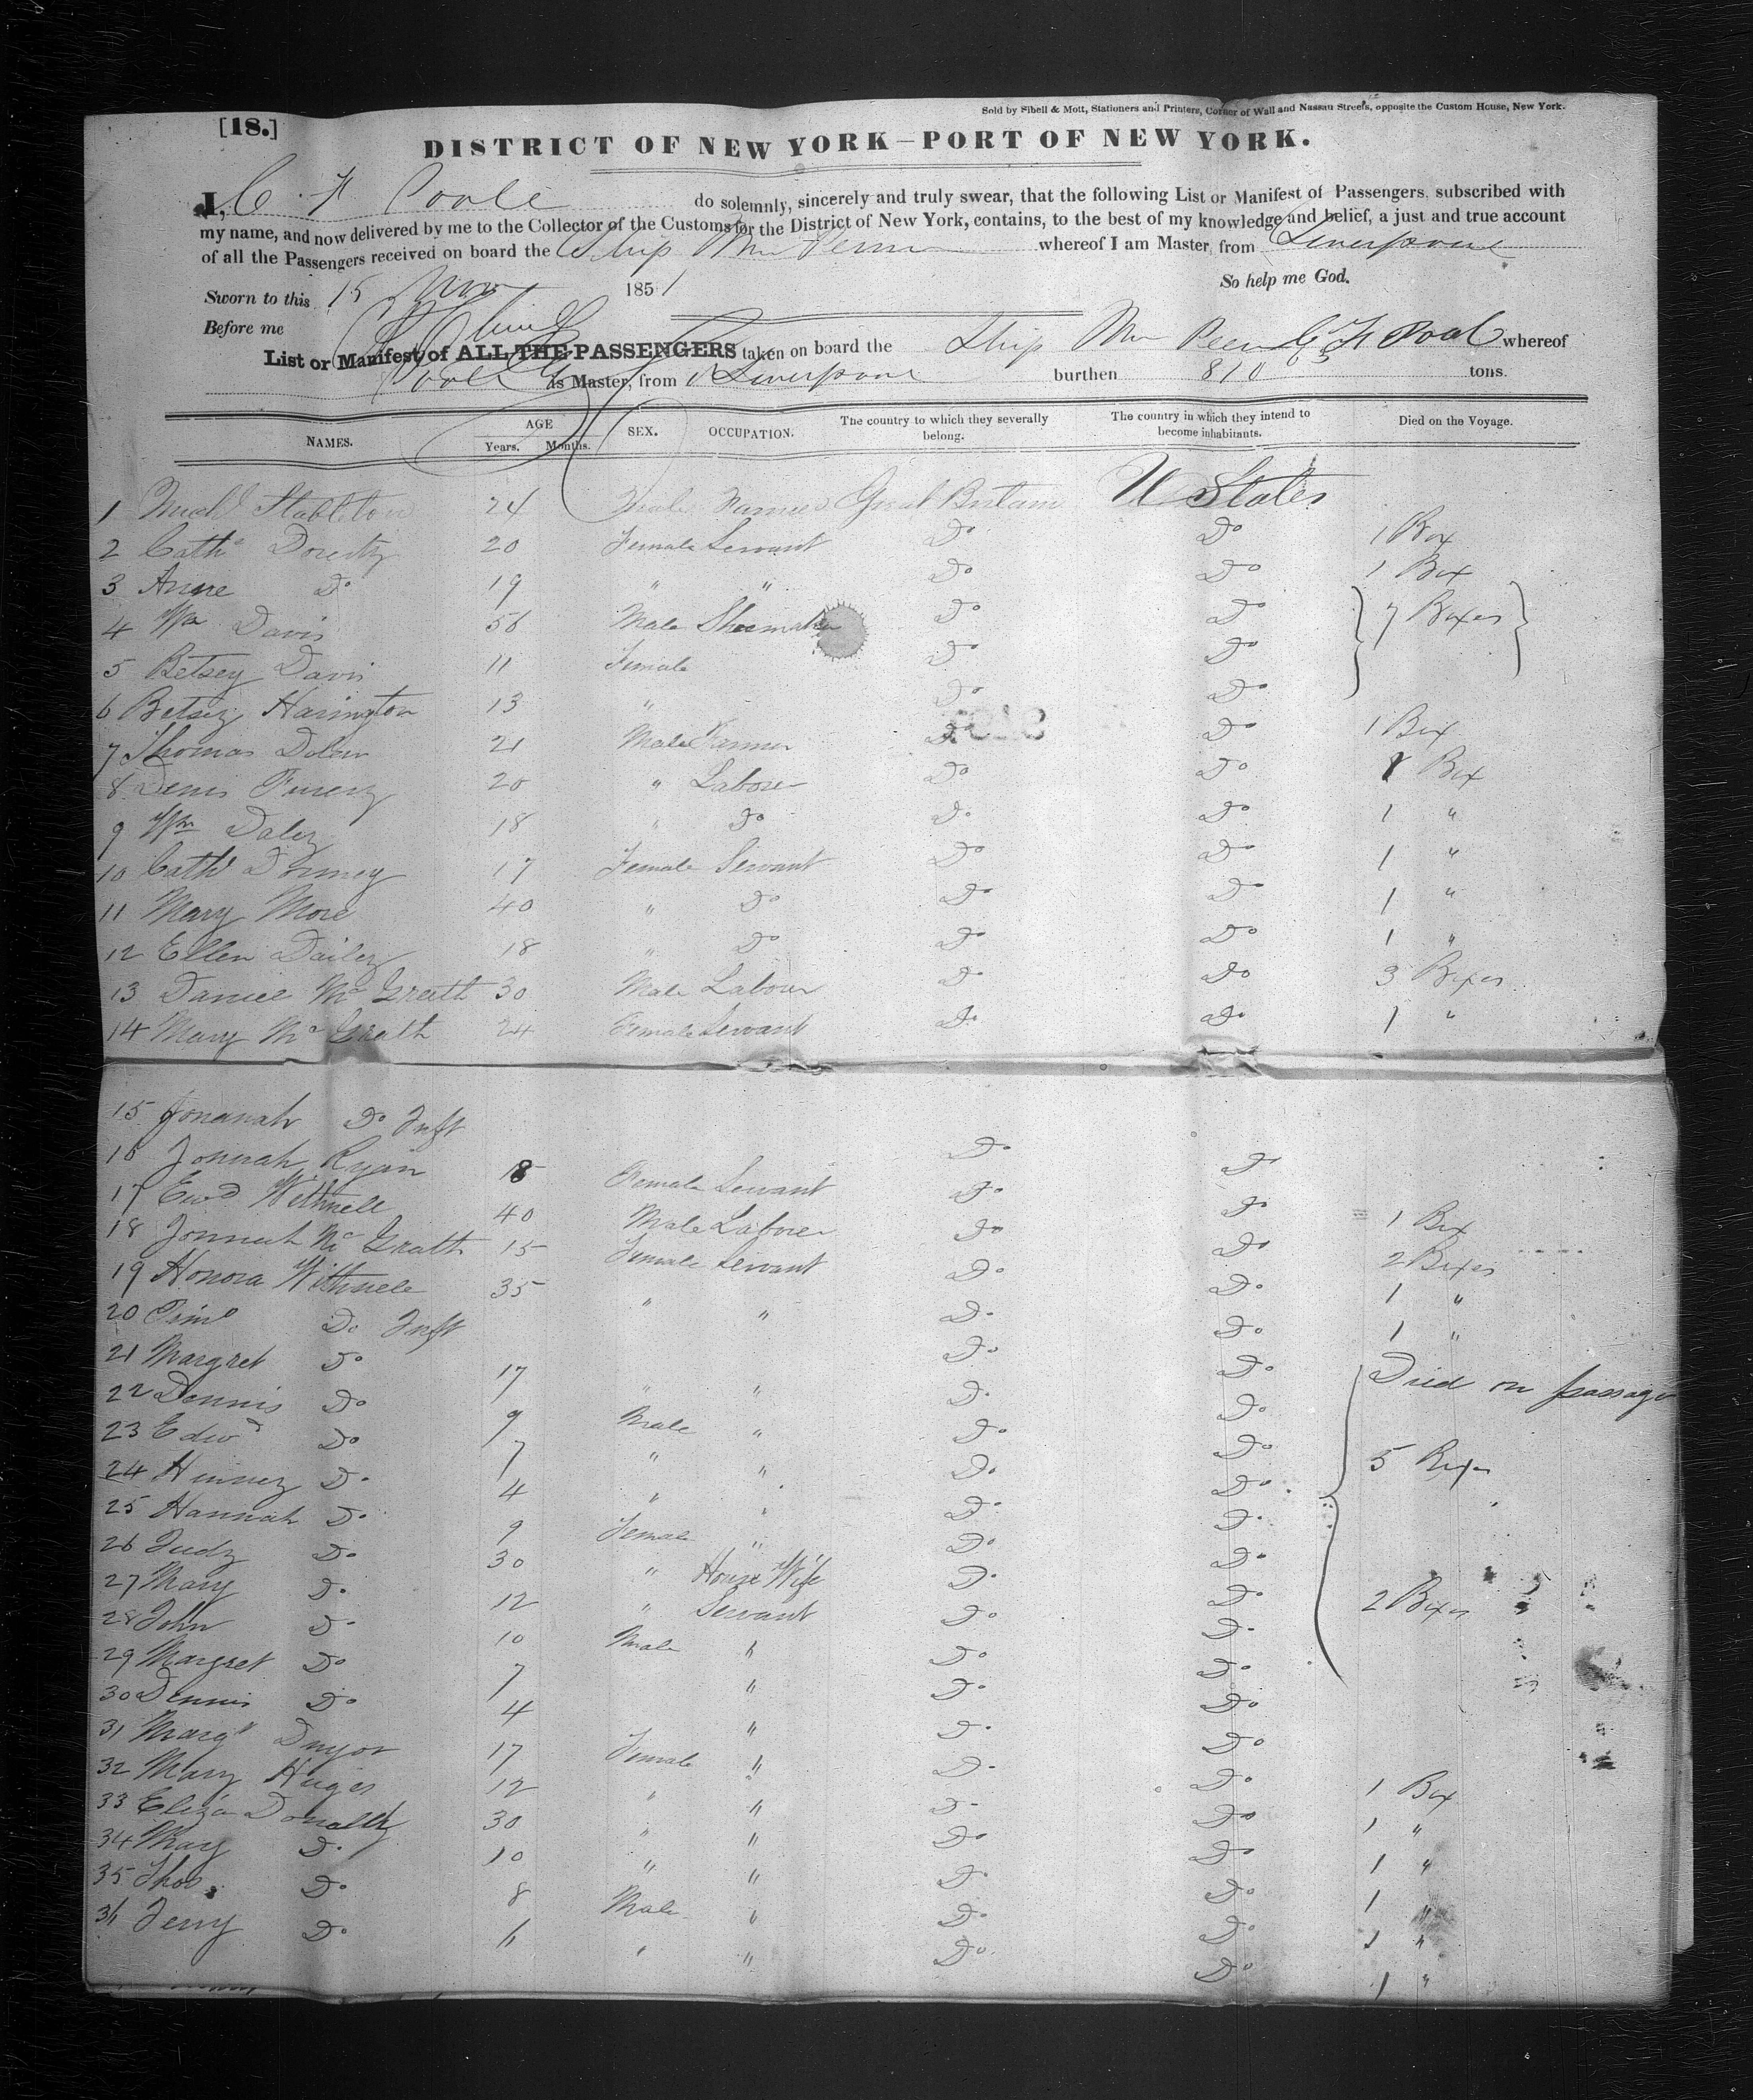 [18.]
Sold by Sibell & Mott, Stationers and Printers, Corner of Wall and Nassau Streets, opposite the Custom House, New York.
DISTRICT OF NEW YORK—PORT OF NEW YORK.
I, C. H Poole do solemnly, sincerely and truly swear, that the following List or Manifest of Passengers, subscribed with
my name, and now delivered by me to the Collector of the Customs for the District of New York, contains, to the best of my knowledge and belief, a just and true account
of all the Passengers received on board the Ship Wm Penn whereof I am Master, from Liverpool
Sworn to this 15 Nov 1851 So help me God.
Before me
List or Manifest of ALL THE PASSENGERS taken on board the Ship Wm Penn C H Pool whereof
Poole as Master, from Liverpool burthen 810 tons.
NAMES. AGE Years. Months. SEX. OCCUPATION. The country to which they severally belong. The country in which they intend to become inhabitants. Died on the Voyage.
1 Michl Stableton 24 Male Farmer Great Britain U States
2 Cath Doherty 20 Female Servant Do Do 1 Box
3 Anne Do 19 " " Do Do 1 Box
4 Wm Davis 56 Male Shoemaker Do Do 7 Boxes
5 Betsey Davis 11 Female Do Do
6 Betsey Harington 13 " Do Do
7 Thomas Dolan 21 Male Farmer Do Do 1 Box
8 Denis 20 " Laborer Do Do 1 Box
9 Wm Daley 18 " Do Do Do 1 "
10 Cath 17 Female Servant Do Do 1 "
11 Mary More 40 " Do Do Do 1 "
12 Ellen Dailey 18 " Do Do Do 1 "
13 Daniel Mc Grath 30 Male Labourer Do Do 3 Boxes
14 Mary Mc Grath 24 Female Servant Do Do 1 "
15 Jonanah Do Inft Do Do
16 Jonnah Ryan 18 Female Servant Do Do
17 Ewd Withnell 40 Male Laborer Do Do 1 Box
18 Jonnah Mc Grath 15 Female Servant Do Do 2 Boxes
19 Honora Withnele 35 " " Do Do 1 "
20 Do Inft Do Do 1 "
21 Margret Do 17 " " Do Do Died on passage
22 Dennis Do 9 Male " Do Do
23 Edwd Do 7 " " Do Do 5 Boxes
24 Do 4 " " Do Do
25 Hannah Do 9 Female " Do Do
26 Judy Do 30 " House Wife Do Do
27 Mary Do 12 " Servant Do Do 2 Boxes
28 John Do 10 Male " Do Do
29 Margret Do 7 " Do Do
30 Dennis Do 4 " Do Do
31 Margt 17 Female " Do Do
32 Mary Huges 12 " " Do Do 1 Box
33 Eliza Donally 30 " " Do Do 1 "
34 Mary Do 10 " " Do Do 1 "
35 Thos Do 8 Male " Do Do 1 "
36 Jerry Do 6 " " Do Do 1 "
1 "